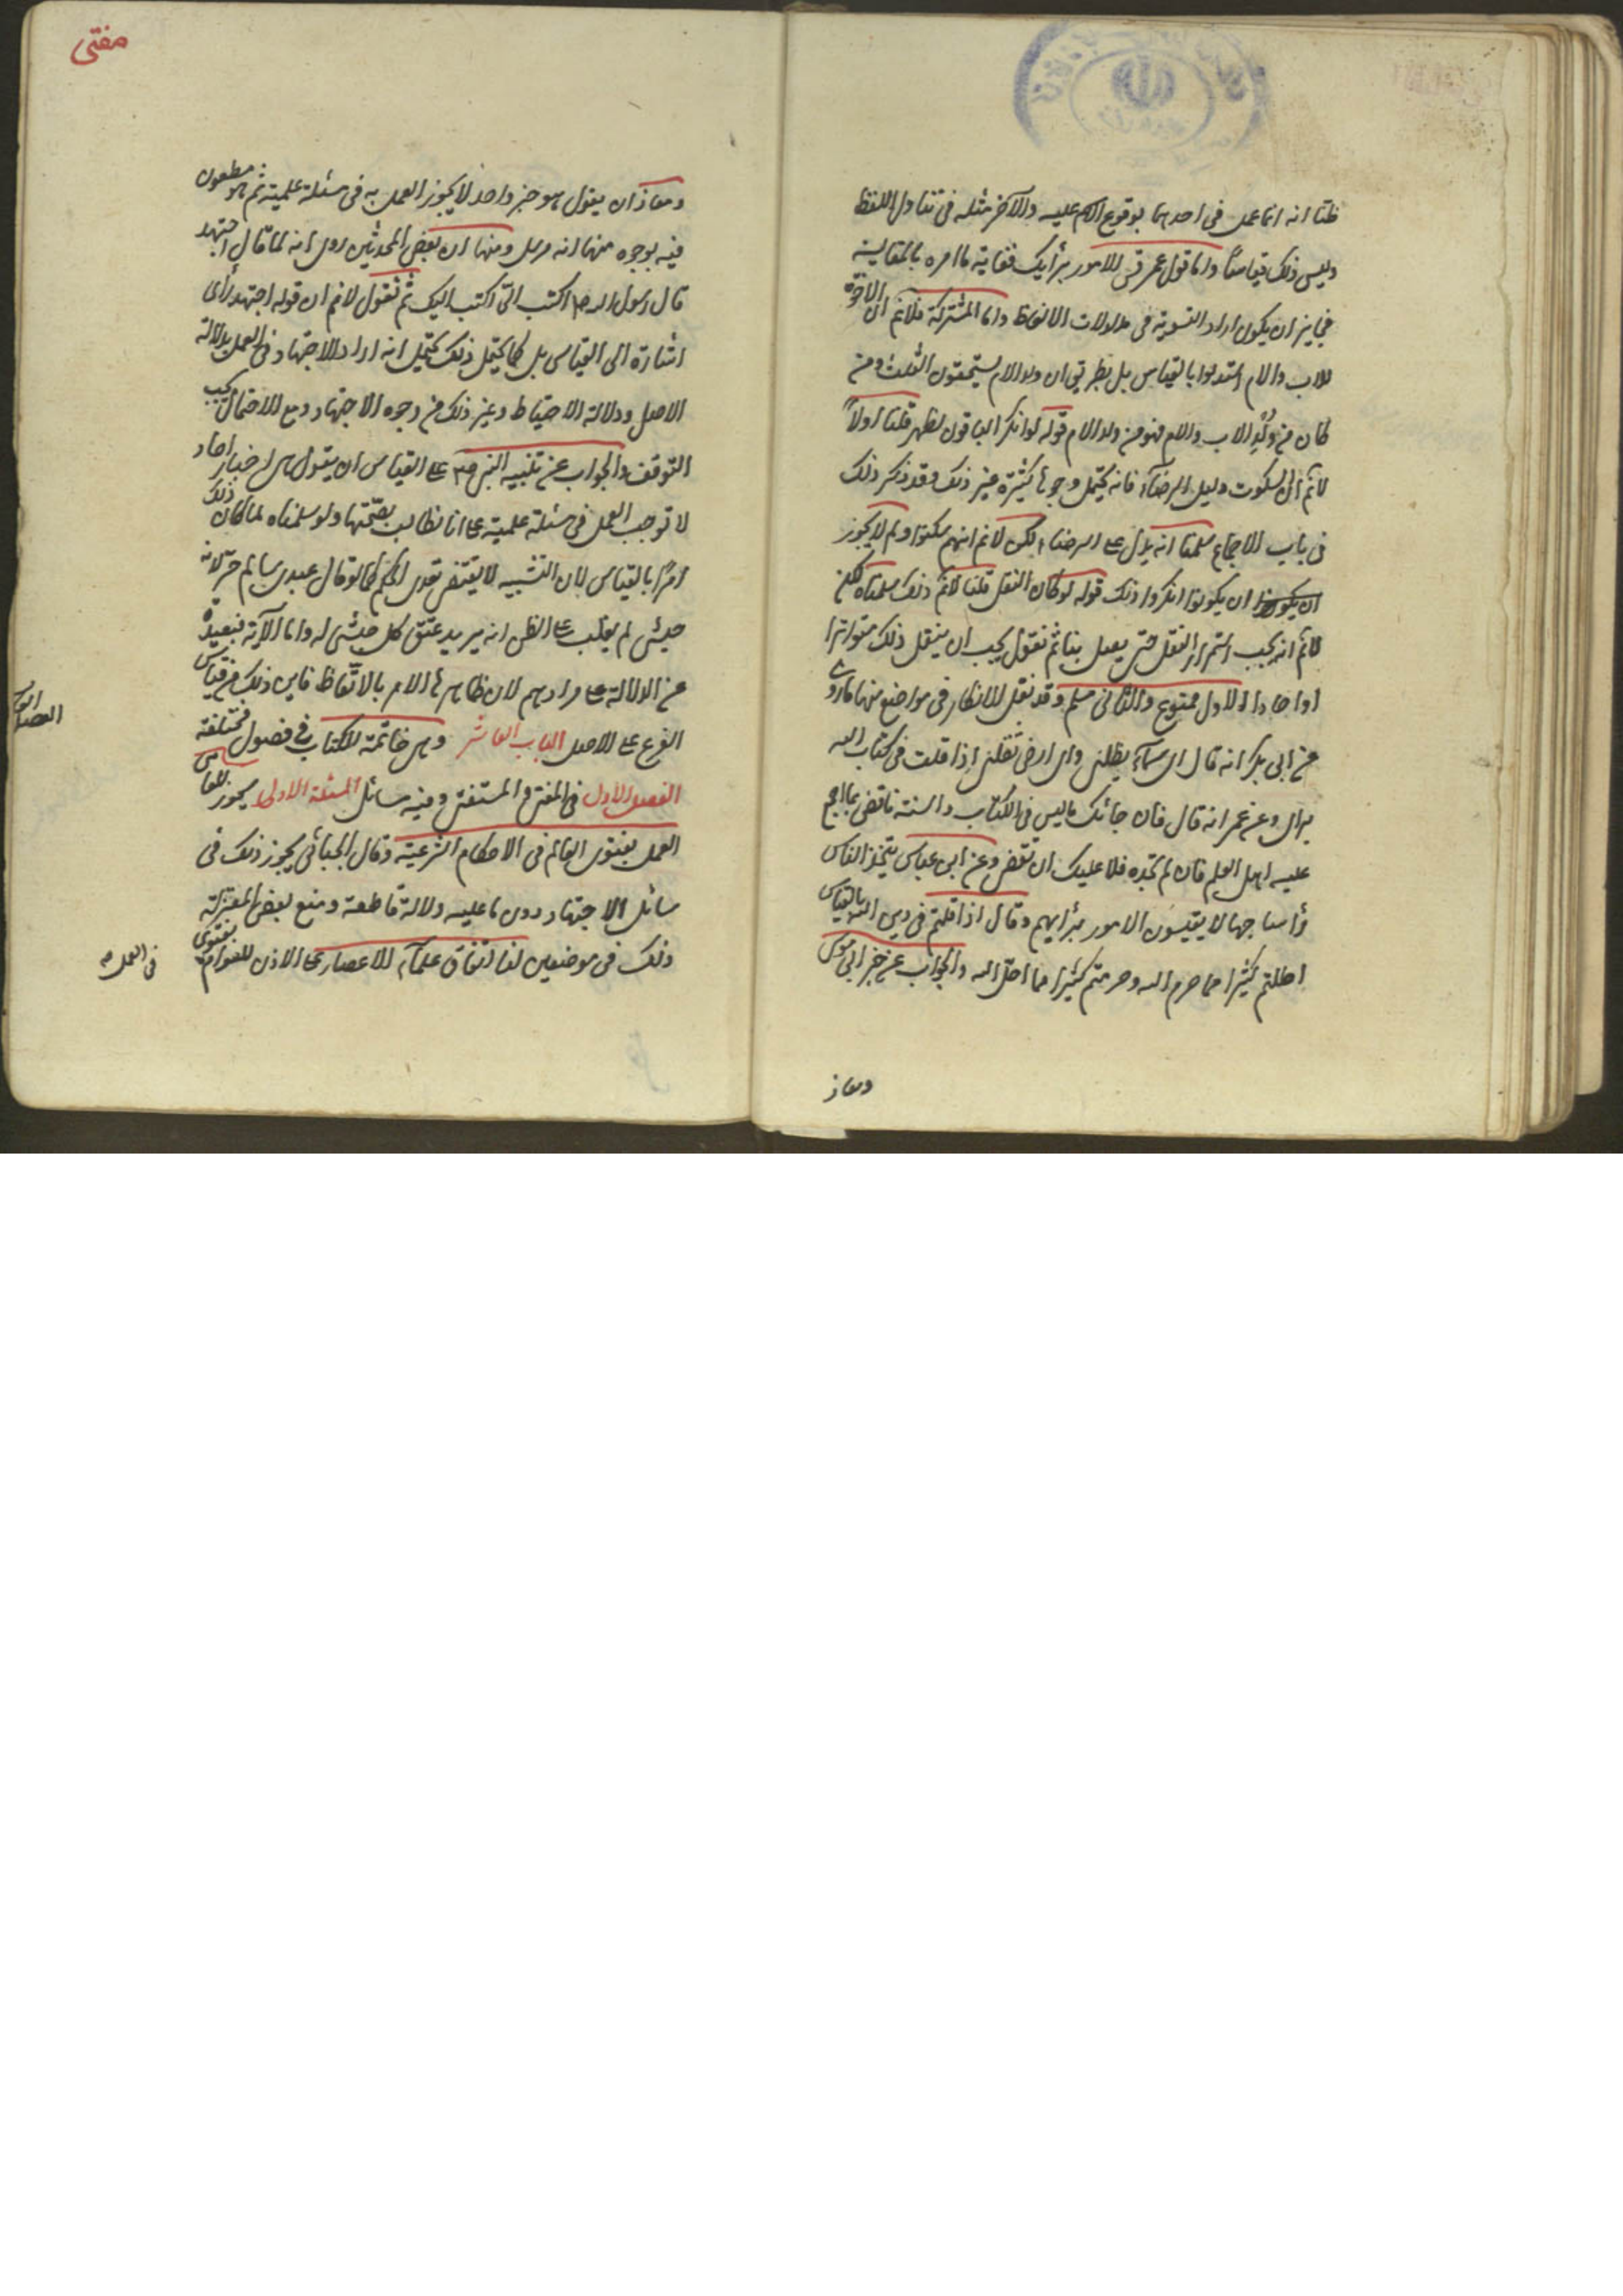 ظنا انه انما عمل فى احدهما بوقوع اسم عليه والآخر مثله فى تناول اللفظ
وليس ذلك قياسًا واما قول عمر قس الامور برأيك فغاية ما امره بالمقايسة
فجايز ان يكون اراد التسوية فى مدلولات الالفاظ واما المشتركة فلانم ان الاخوة
للاب والام استدلوا بالقياس بل بطريق ان ولد الام يستحقون الثلث ومن
كان من ولد الاب والام فهو من ولد الام قوله لو انكر الباقون لظهر قلنا اولاً
لانم ان السكوت دليل الرضاء فانه يحتمل وجوها كثيرة غير ذلك وقد ذكر ذلك
فى باب الاجماع سلمنا انه يدل على الرضاء لكن لانم انهم سكتوا ولم لا يجوز
ان يكونوا ان يكونوا انكروا ذلك قوله لو كان لنقل قلنا لانم ذلك سلمناه لكن
لانم انه يجب استمرار النقل حتى يصل بنا ثم نقول يجب ان ينقل ذلك متواترا
او احادا الاول ممنوع والثانى مسلم وقد نقل الانكار فى مواضع منها ما روى
عن ابى بكر انه قال اى سماء يظلنى واى ارض تقلنى اذا قلت فى كتاب الله
برأى وعن عمر انه قال فان جائك ما ليس فى الكتاب والسنة فاقض بما اجمع
عليه اهل العلم فان لم تجده فلا عليك ان تقض وعن ابن عباس يتخذ الناس
رؤسا جهالا يقيسون الامور برأيهم وقال اذا قلتم فى دين الله بالقياس
احللتم كثيرا مما حرم الله وحرمتم كثيرا مما احل الله والجواب عن خبر ابى موسى
ومعاذ
مفتى
ومعاذ ان يقول هو خبر واحد لا يجوز العمل به فى مسئلة علمية ثم هو مطعون
فيه بوجوه منها انه مرسل ومنها ان بعض المحدثين روى انه لما قال اجتهد
قال رسول الله ص اكتب الىّ اكتب اليك ثم نقول لانم ان قوله اجتهد رأى
اشارة الى القياس بل كما يحتمل ذلك يحتمل انه اراد الاجتهاد فى العمل بدلالة
الاصل ودلالة الاحتياط وغير ذلك من وجوه الاجتهاد ومع الاحتمال يجب
التوقف والجواب عن تنبيه النبى ص على القياس ان يقول هى اخبار احاد
لا توجب العمل فى مسئلة علمية على انا نطالب بصحتها ولو سلمناه لما كان ذلك
امرًا بالقياس لان التشبيه لا يقتضى تعدى الحكم كما لو قال عبدى سالم حر لانه
حبشى لم يغلب على الظن انه يريد عتق كل حبشى له واما الآية فبعيدة
عن الدلالة على مرادهم لان ظاهرها الامر بالاتعاظ فاين ذلك من قياس
الفرع على الاصل الباب العاشر وهى خاتمة الكتاب فى فصول مختلفة
الفصل الاول فى المفتى والمستفتى وفيه مسائل المسئلة الاولى يجوز للعامى
العمل بفتوى العالم فى الاحكام الشرعية وقال الجبائى يجوز ذلك فى
مسائل الاجتهاد دون ما عليه دلالة قاطعة ومنع بعض المعتزلة
ذلك فى موضعين لنا اتفاق علماء الاعصار على الاذن للعوام
فى العمل بفتوى